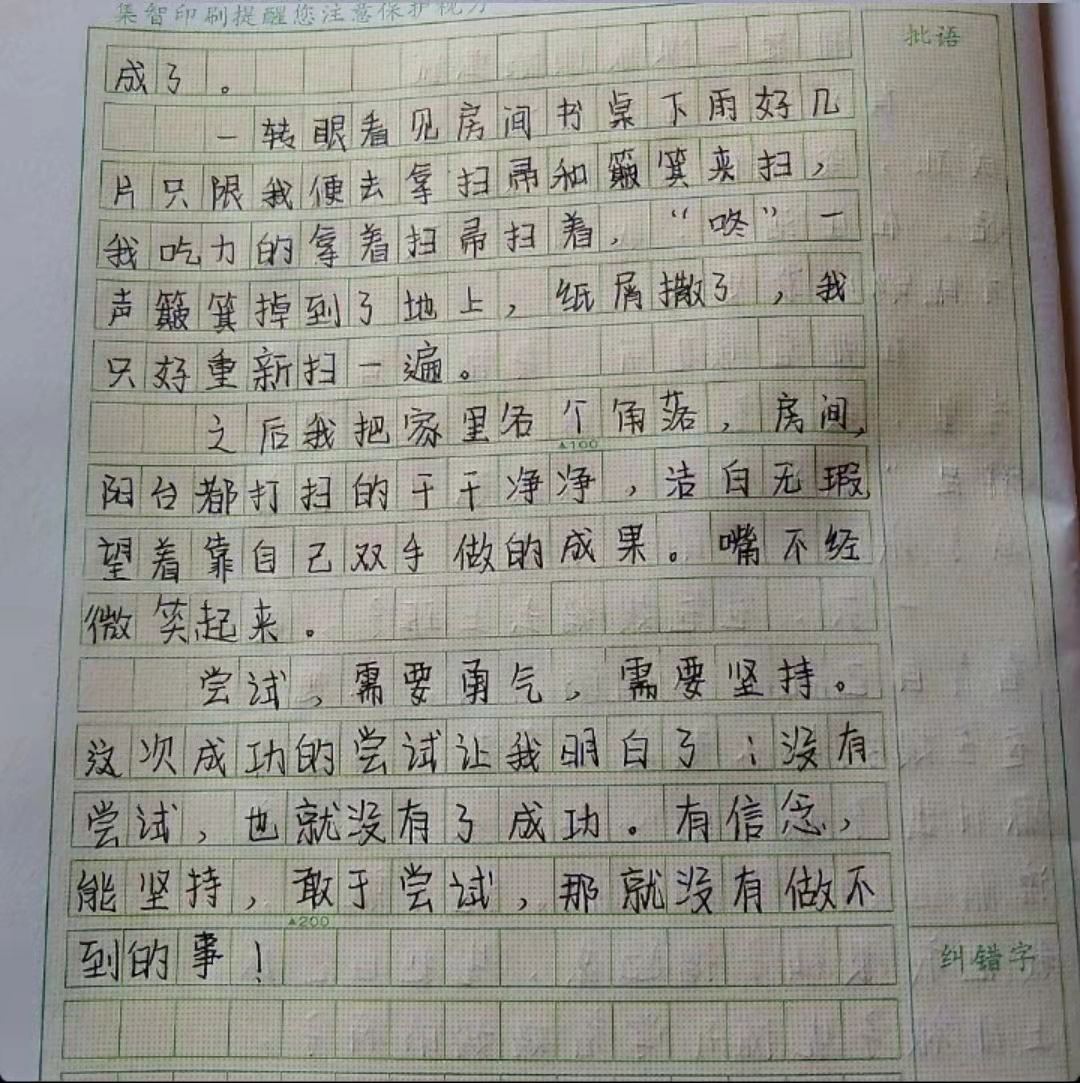 集智印刷提醒您注意保护视力
批语
成了。
一转眼看见房间书桌下雨好几
片只限我便去拿扫帚和簸箕来扫，
我吃力的拿着扫帚扫着，“咚”一
声簸箕掉到了地上，纸屑撒了，我
只好重新扫一遍。
之后我把家里各个角落，房间，
▲100
阳台都打扫的干干净净，洁白无瑕
望着靠自己双手做的成果。嘴不经
微笑起来。
尝试，需要勇气，需要坚持。
这次成功的尝试让我明白了；没有
尝试，也就没有了成功。有信念，
能坚持，敢于尝试，那就没有做不
▲200
到的事！
纠错字